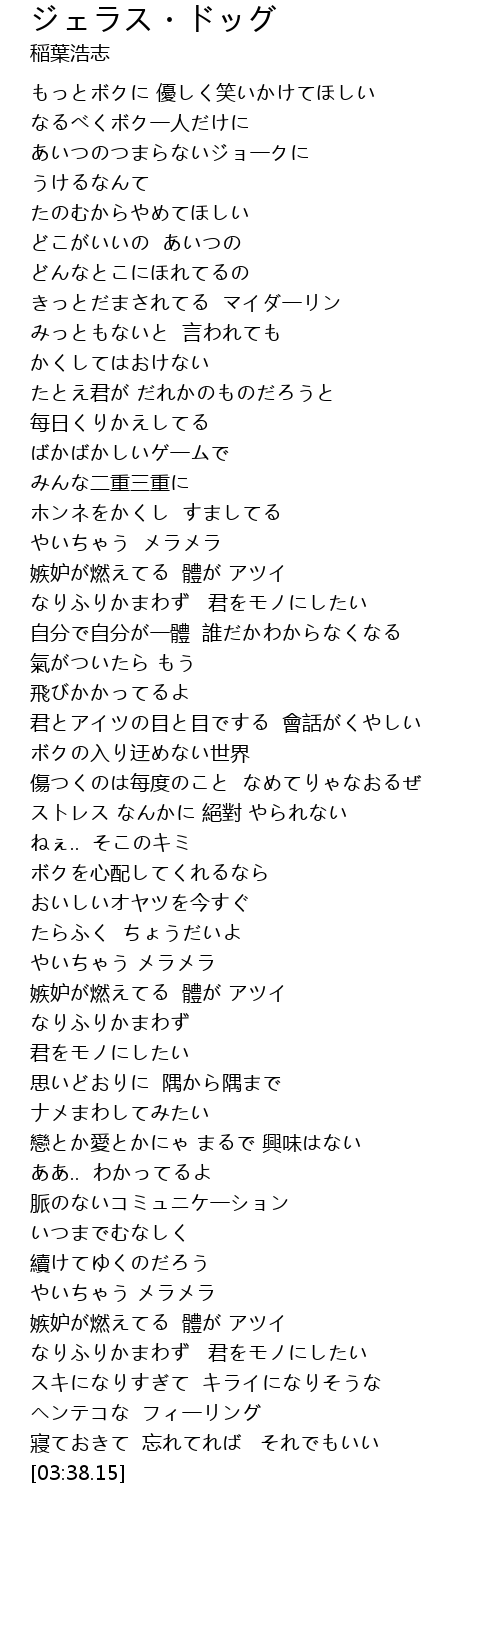 ジェラス・ドッグ
稲葉浩志
もっとボクに 優しく笑いかけてほしい
なるべくボク一人だけに
あいつのつまらないジョークに
うけるなんて
たのむからやめてほしい
どこがいいの  あいつの
どんなとこにほれてるの
きっとだまされてる  マイダーリン
みっともないと  言われても
かくしてはおけない
たとえ君が だれかのものだろうと
每日くりかえしてる
ばかばかしいゲームで
みんな二重三重に
ホンネをかくし  すましてる
やいちゃう  メラメラ
嫉妒が燃えてる  體が アツイ
なりふりかまわず   君をモノにしたい
自分で自分が一體  誰だかわからなくなる
氣がついたら もう
飛びかかってるよ
君とアイツの目と目でする  會話がくやしい
ボクの入り迂めない世界
傷つくのは每度のこと  なめてりゃなおるぜ
ストレス なんかに 絕對 やられない
ねぇ..  そこのキミ
ボクを心配してくれるなら
おいしいオヤツを今すぐ
たらふく  ちょうだいよ
やいちゃう メラメラ
嫉妒が燃えてる  體が アツイ
なりふりかまわず
君をモノにしたい
思いどおりに  隅から隅まで
ナメまわしてみたい
戀とか愛とかにゃ まるで 興味はない
ああ..  わかってるよ
脈のないコミュニケーション
いつまでむなしく
續けてゆくのだろう
やいちゃう メラメラ
嫉妒が燃えてる  體が アツイ
なりふりかまわず   君をモノにしたい
スキになりすぎて  キライになりそうな
ヘンテコな  フィーリング
寢ておきて  忘れてれば   それでもいい
[03:38.15]